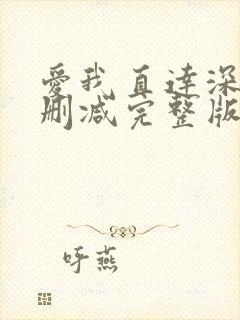 爱我直达深
删减完整版
呼燕